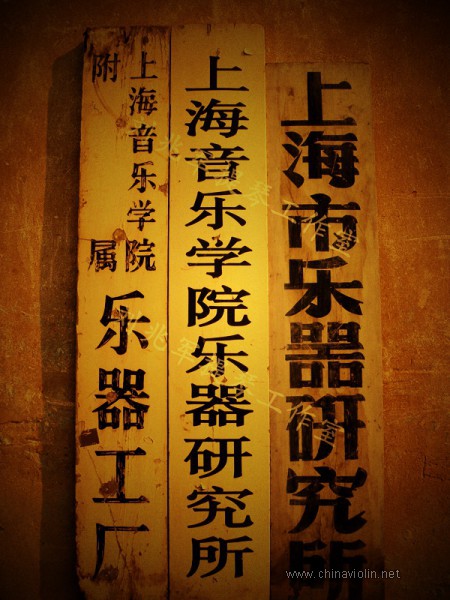 上海市乐器研究所
上海音乐学院乐器研究所
上海音乐学院
附属
乐器工厂
www.chinaviolin.net